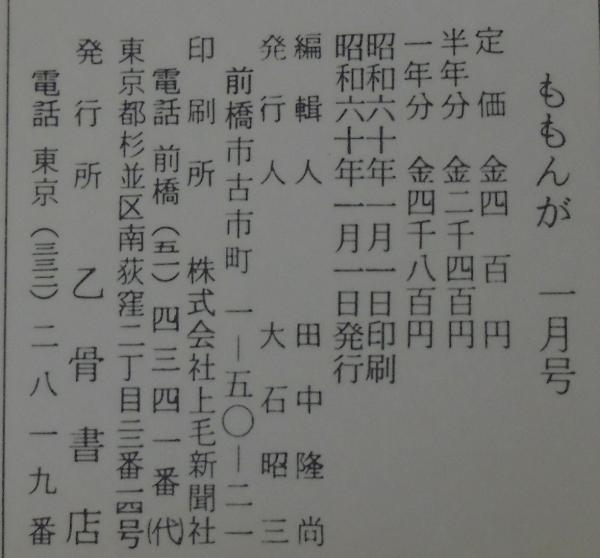 ももんが 一月号
定価 金四百円
半年分 金二千四百円
一年分 金四千八百円
昭和六十年一月一日印刷
昭和六十年一月一日発行
編輯人 田中隆尚
発行人 大石昭三
前橋市古市町一―五〇―二一
印刷所 株式会社上毛新聞社
電話 前橋(五一)四三四一番(代)
東京都杉並区南荻窪二丁目二三番一四号
発行所 乙骨書店
電話 東京(三三三)二八一九番